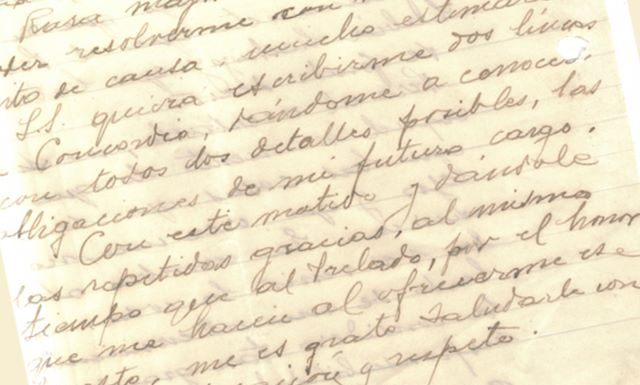 Rosa
der resolverme con
nto de causa mucho estimaré
S.S. quiera escribirme dos líneas
Concordia, dándome a conocer,
con todos dos detalles posibles, las
obligaciones de mi futuro cargo.
Con este motivo y dándole
las repetidas gracias, al mismo
tiempo que al Prelado, por el honor
que me hacen al ofrecerme ese
esto, me es grato saludarle con
ción y respeto.